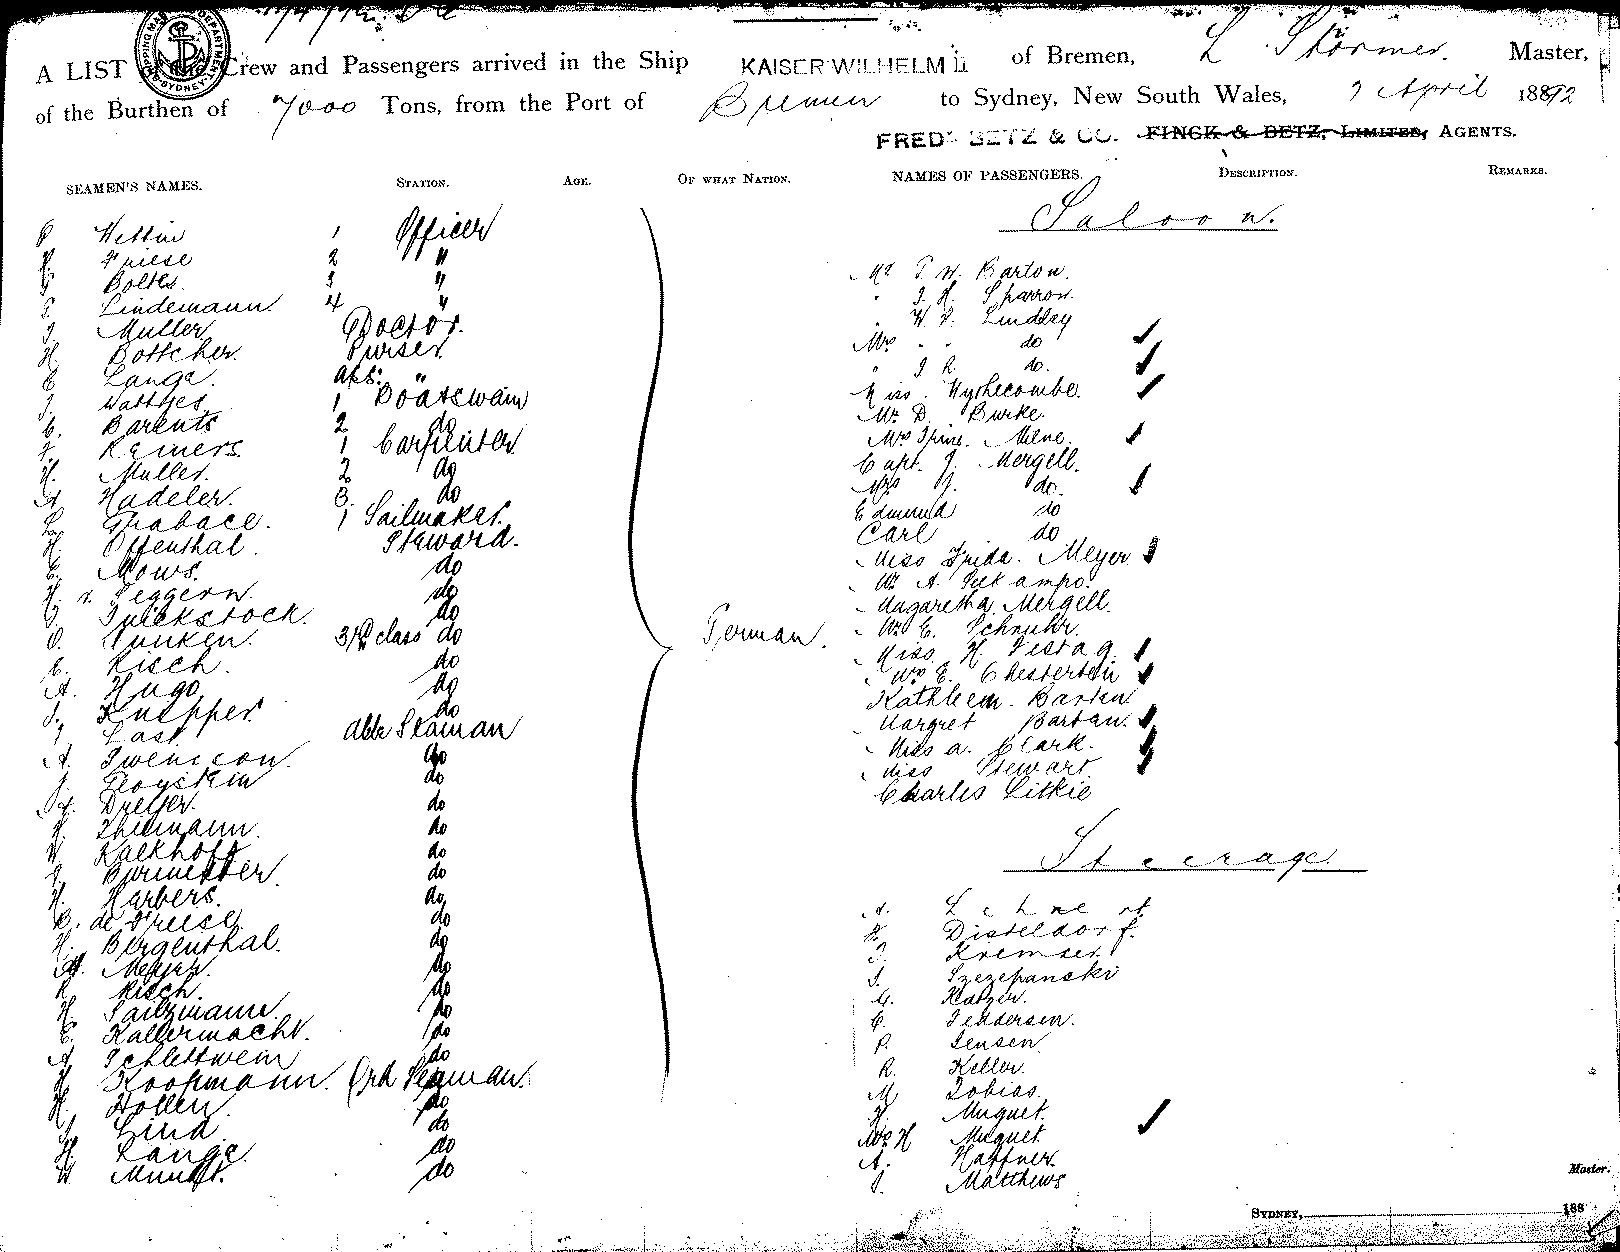 A LIST of the Crew and Passengers arrived in the Ship KAISER WILHELM II of Bremen, L Störmer. Master,
of the Burthen of 7000 Tons, from the Port of Bremen to Sydney, New South Wales, 7 April 1892
FRED BETZ & CO. FINCK & BETZ, LIMITED, AGENTS.
SEAMEN'S NAMES. STATION. AGE. OF WHAT NATION.
Wettin 1 Officer
Friese 2 "
Boltes. 3 "
Lindemann 4 "
Muller Doctor.
H. Bottcher. Purser.
C Lange. ass. "
Wattjes 1 Boatswain
C. Barents 2 do
F. Reiners. 1 Carpenter
H. Muller. 2 do
A Hadeler. 3. do
Grabace. 1 Sailmaker.
H. Offenthal. Steward.
C. Mows. do
H. v. Seggern. do
Quickstock. do
O. Lunken. 3rd class do
C. Risch. do
A. Hugo do
Knepper. do
Last Able Seaman
A. do
do
Dreyer. do
H. Thiemann. do
W Kalkhoff. do
Burmester do
H. Harbers. do
de Friese do
H. Bergenthal. do
Meyer. do
R Risch. do
H Saltzmann. do
C. Kallermacht. do
A Schlettwein do
H Koopmann. Ord Seaman.
H. Hollen. do
Lind do
H. Lange. do
W Mundt. do
German.
NAMES OF PASSENGERS. DESCRIPTION. REMARKS.
Saloon.
Mr Barton.
J. H. Sparrow.
Lindley
Mrs " " do
" J R. do.
Miss Wythecombe.
Mr. D. Burke.
Mrs Irine. Mene.
Capt. J. Mergell.
Mrs J. do.
Edmund do
Carl do
Miss Frida. Meyer
Mr A. Seekampo.
Margaretha Mergell.
Mr E. Schnuhr.
Miss H. Vestag.
Mrs E. Chesterton
Kathleen. Barton
Margret Barton.
Miss A. Clark.
Miss Stewart.
Charles Litkie
Steerage
A. Lehnert
Disteldorf.
Kremser.
Szczepanski
G. Katzer.
C. Peddersen.
P. Jensen
R. Keller.
M Tobias.
H. Muguet.
Mrs H Muguet
A. Haffner.
J. Matthews
Master.
SYDNEY, 188